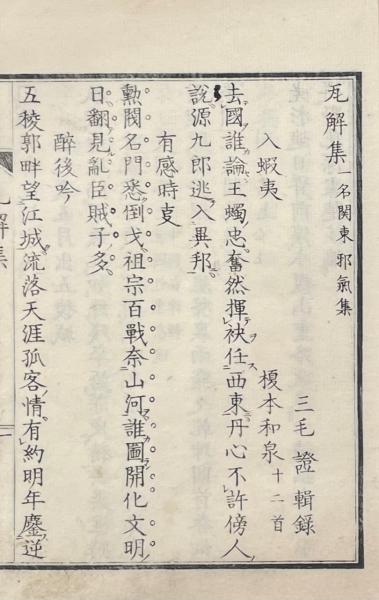 瓦解集 一名関東邪氣集
三毛證輯録
入蝦夷 榎本和泉 十二首
去國誰論王蠋忠奮然揮袂任西東丹心不許傍人
說源九郎逃入異邦
有感時事
勲閥名門悉倒戈祖宗百戰奈山河誰圖開化文明
日翻見亂臣賊子多
醉後吟
五稜郭畔望江城流落天涯孤客情有約明年鏖逆